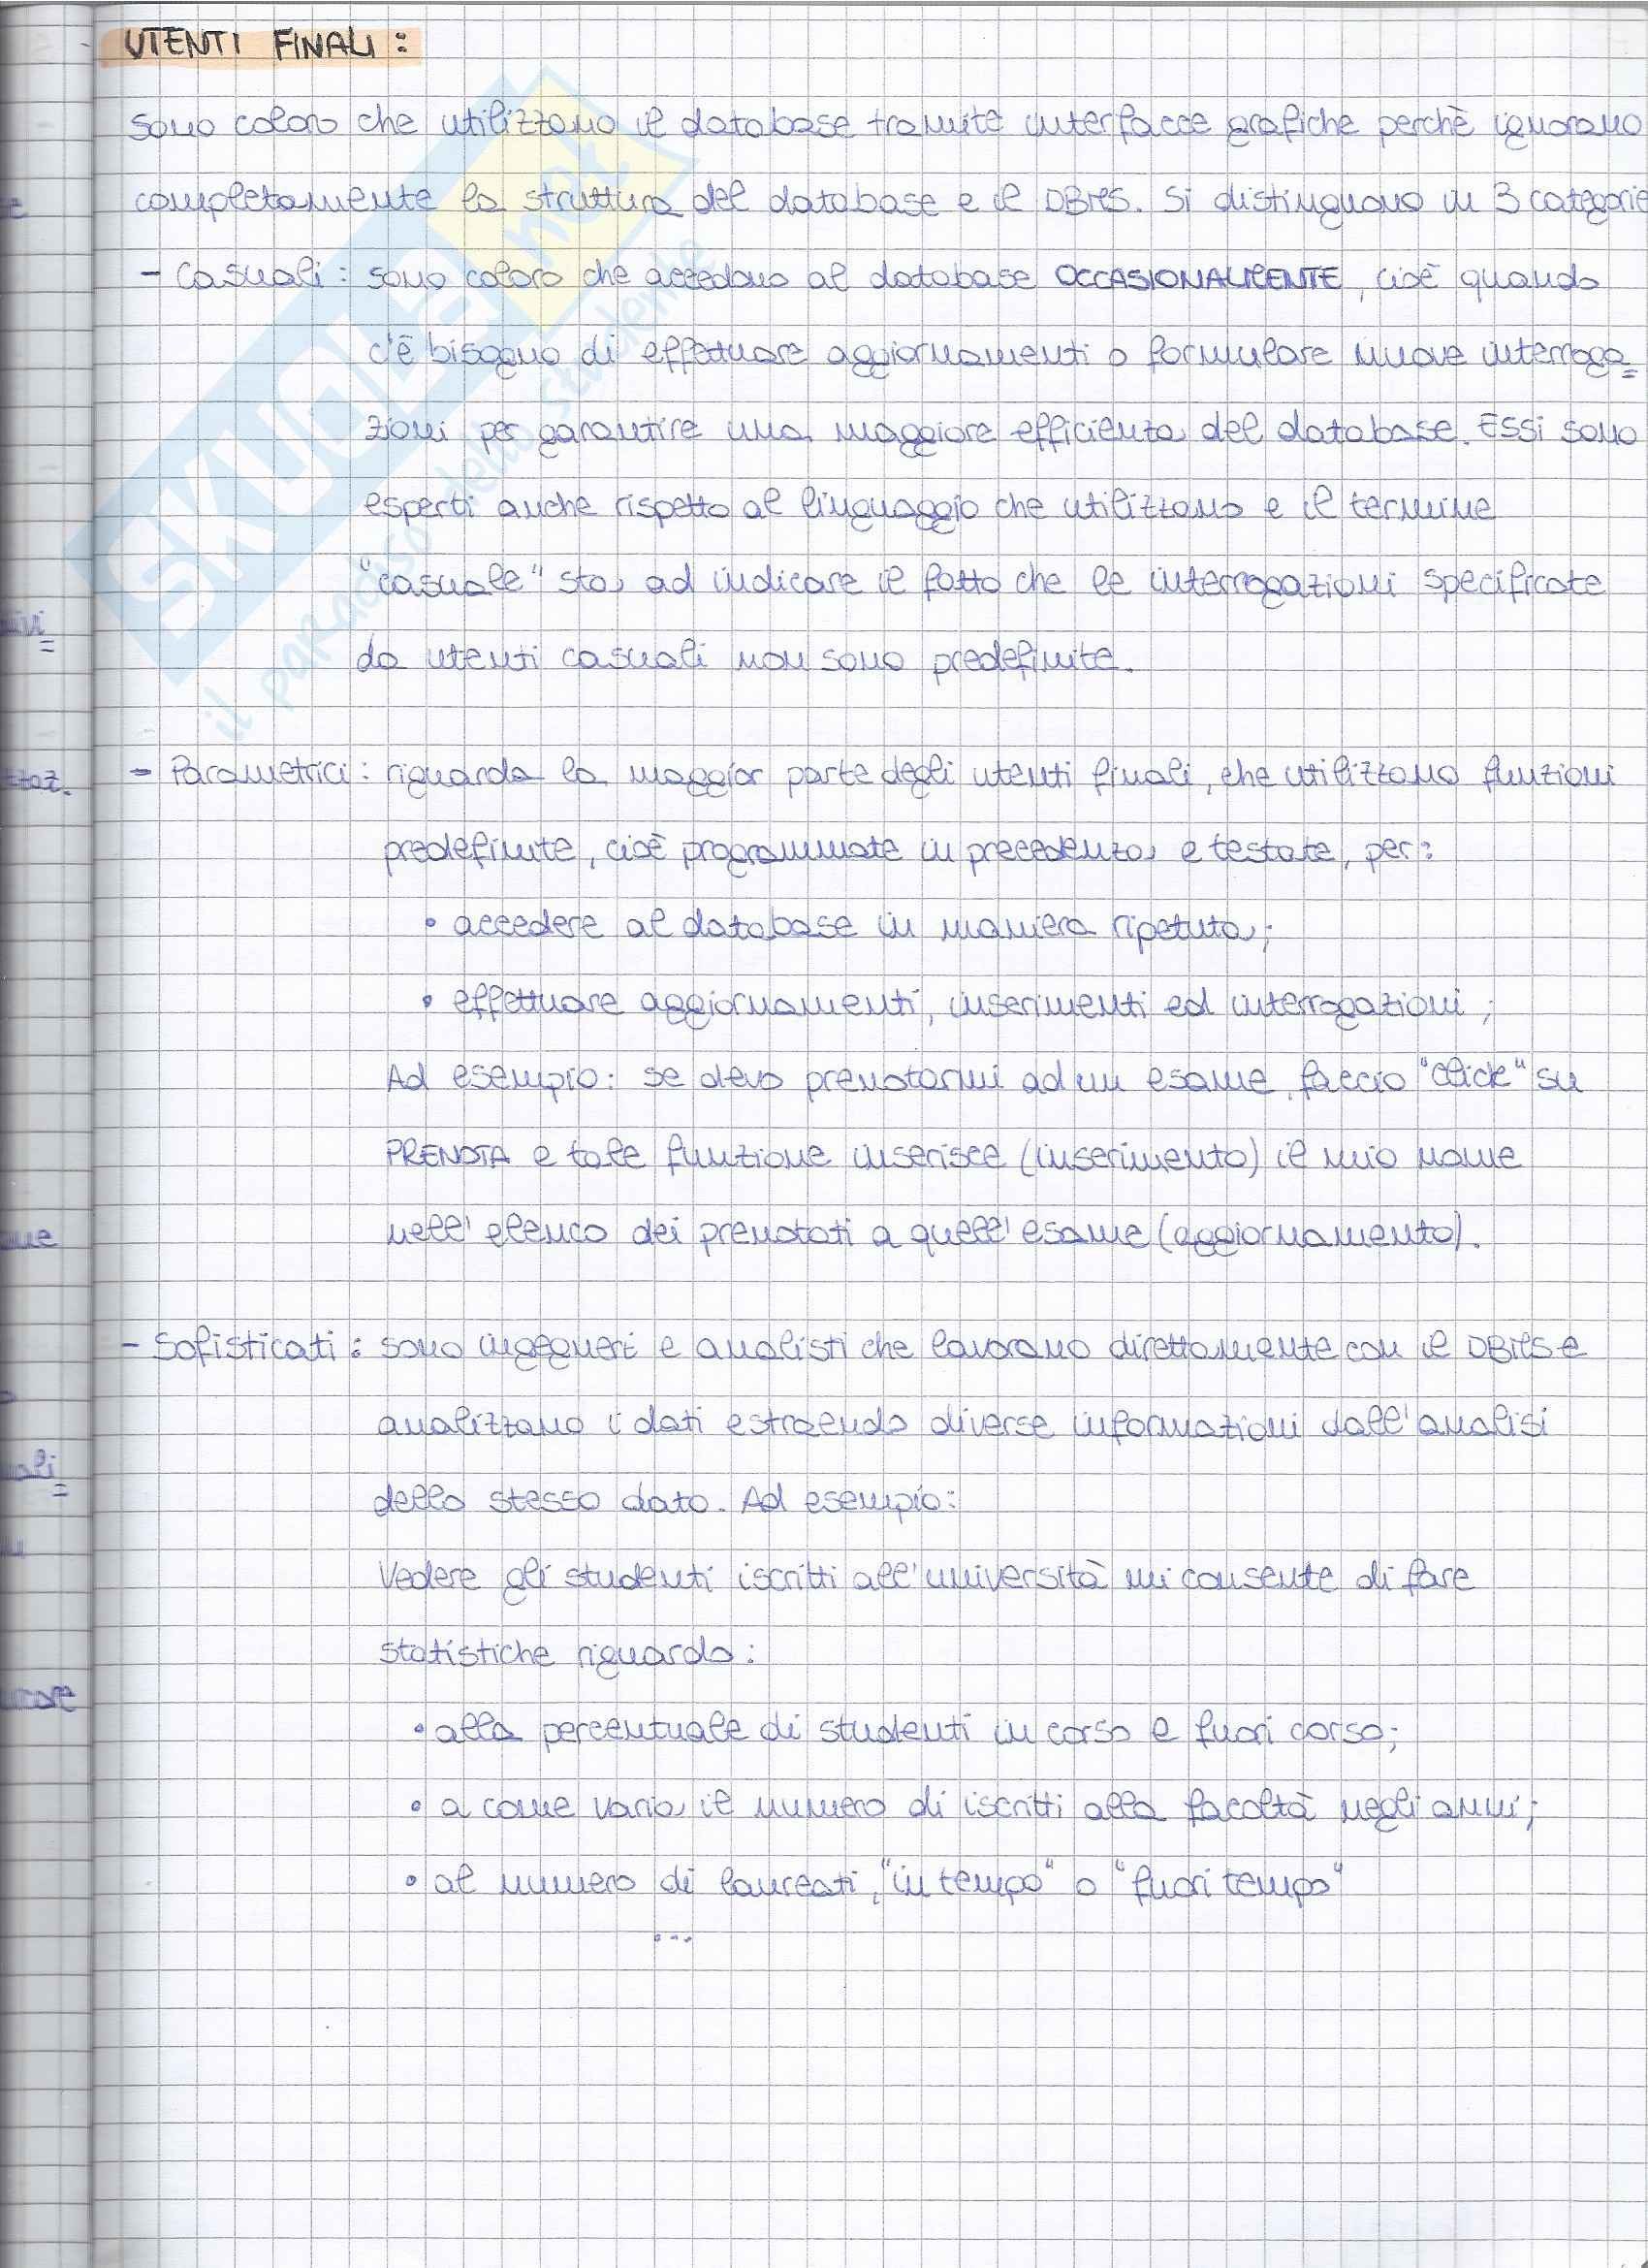 UTENTI FINALI:
sono coloro che utilizzano il database tramite interfacce grafiche perchè ignorano
completamente la struttura del database e il DBMS. Si distinguono in 3 categorie
- Casuali: sono coloro che accedono al database OCCASIONALMENTE, cioè quando
c'è bisogno di effettuare aggiornamenti o formulare nuove interroga=
zioni per garantire una maggiore efficienza del database. Essi sono
esperti anche rispetto al linguaggio che utilizzano e il termine
"casuale" sta ad indicare il fatto che le interrogazioni specificate
da utenti casuali non sono predefinite.
- Parametrici: riguarda la maggior parte degli utenti finali, che utilizzano funzioni
predefinite, cioè programmate in precedenza e testate, per:
• accedere al database in maniera ripetuta;
• effettuare aggiornamenti, inserimenti ed interrogazioni;
Ad esempio: se devo prenotarmi ad un esame, faccio "click" su
PRENOTA e tale funzione inserisce (inserimento) il mio nome
nell'elenco dei prenotati a quell'esame (aggiornamento).
- Sofisticati: sono ingegneri e analisti che lavorano direttamente con il DBMS e
analizzano i dati estraendo diverse informazioni dall'analisi
dello stesso dato. Ad esempio:
Vedere gli studenti iscritti all'università mi consente di fare
statistiche riguardo:
• alla percentuale di studenti in corso e fuori corso;
• a come varia il numero di iscritti alla facoltà negli anni;
• al numero di laureati, "in tempo" o "fuori tempo"
...
SKUOLA.net
il paradiso dello studente